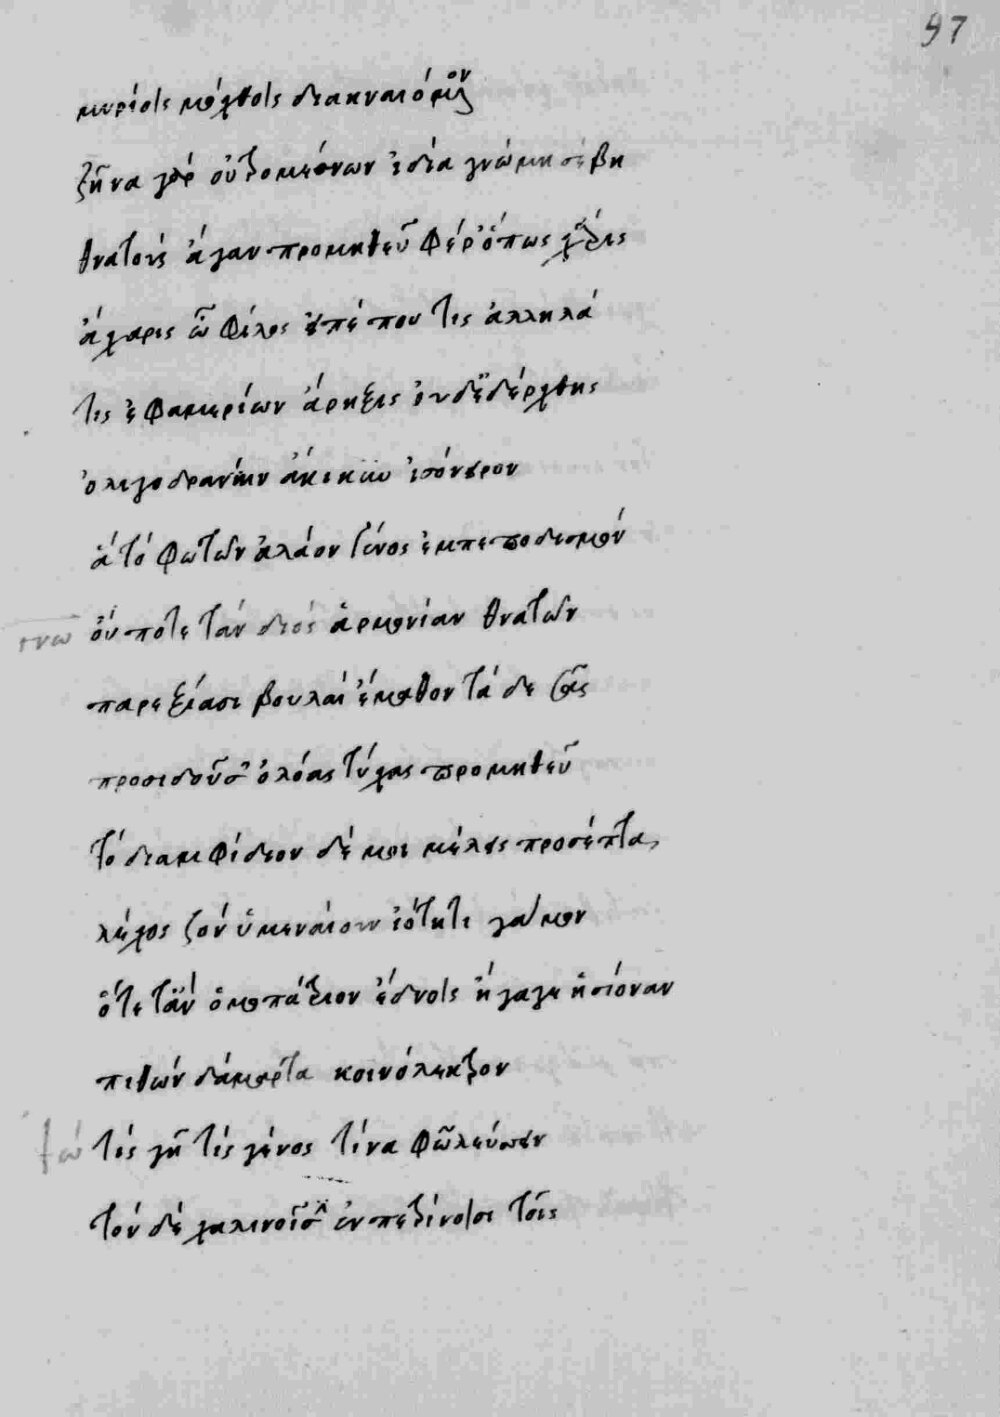 97
μυρίοις μόχθοις διακναιόμενον
ζῆνα γὰρ οὐ τρομέων ἰδία γνώμη σέβη
θνατοὺς ἄγαν προμηθεῦ φέρ' ὅπως χάρις
ἄχαρις ὦ φίλος εἰπέ που τίς ἀλκὰ
τίς ἐφαμερίων ἄρηξις οὐδ' ἐδέρχθης
ὀλιγοδρανίην ἄκικυν ἰσόνειρον
ᾇ τὸ φωτῶν ἀλαὸν γένος ἐμπεποδισμένον
οὔποτε τὰν διὸς ἁρμονίαν θνατῶν
παρεξίασι βουλαί ἔμαθον τάδε σὰς
προσιδοῦσ' ὀλοὰς τύχας προμηθεῦ
τὸ διαμφίδιον δέ μοι μέλος προσέπτα
λέχος σὸν ὑμεναίουν ἰότητι γάμων
ὅτε τὰν ὁμοπάτριον ἕδνοις ἤγαγες ἡσιόναν
πιθὼν δάμαρτα κοινόλεκτρον
ἰώ τίς γῆ τίς γένος τίνα φῶ λεύσσειν
τόνδε χαλινοῖς ἐν πετρίνοισι τοῖς